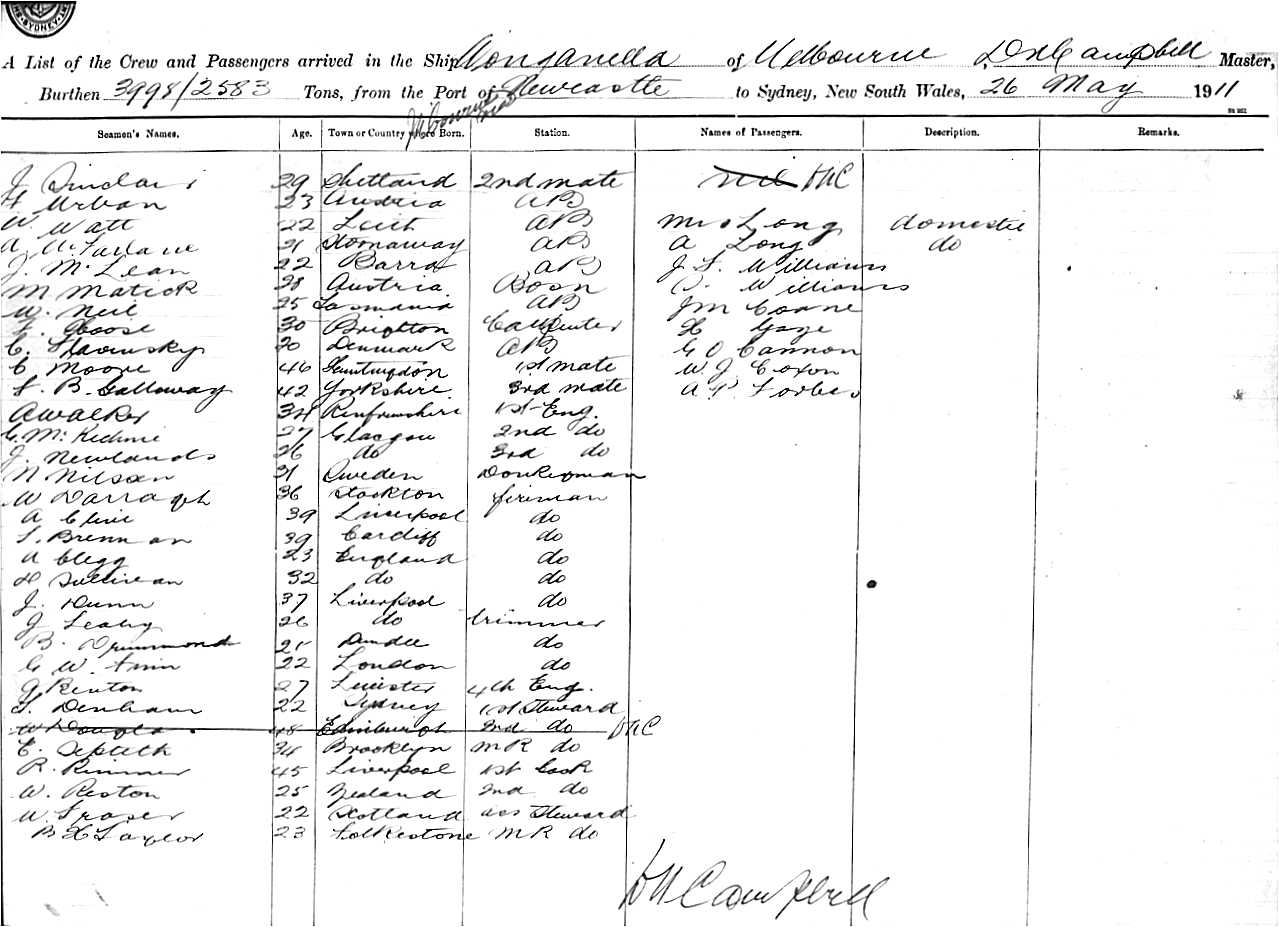 SYDNEY
A List of the Crew and Passengers arrived in the Ship Wonganella of Melbourne D N Campbell Master,
Burthen 3998/2583 Tons, from the Port of Newcastle to Sydney, New South Wales, 26 May 1911
Melbourne
Seamen's Names. Age. Town or Country where Born. Station. Names of Passengers. Description. Remarks.
J Sinclair 29 Shetland 2nd mate nil
H Urban 23 Austria AB
W. Watt 22 Leith AB Mrs Long domestic
A McFarlane 21 Stornaway AB A Long do
J. McLean 22 Barra AB J. S. Williams
M Matick 28 Austria Bosn Williams
W. Neil 25 Tasmania AB J M Coane
F. Goose 30 Brighton Carpenter H Gaze
C. Slavinsky 20 Denmark AB G O Cannon
C Moore 46 Huntingdon 1st mate W J Coxon
F. B. Galloway 42 Yorkshire 3rd mate A P Forbes
A Walker 34 Renfrewshire 1st Eng.
G. McKechnie 27 Glasgow 2nd do
J. Newlands 26 do 3rd do
N Nilsson 31 Sweden Donkeyman
W Darragh 36 Stockton fireman
A Clive 39 Liverpool do
S. Brennan 39 Cardiff do
A Clegg 23 England do
D Sullivan 32 do do
J. Dunn 37 Liverpool do
J Leahy 26 do trimmer
B. Drummond 21 Dundee do
G W. 22 London do
G Renton 27 Leinster 4th Eng.
S. Denham 22 Sydney 1st Steward
W Douglas 48 Edinburgh 2nd do
E. 34 Brooklyn M R do
R. Rimmer 45 Liverpool 1st Cook
W. Reston 25 Zealand 2nd do
W Fraser 22 Scotland ass Steward
B H Taylor 23 Folkestone M R do
D N Campbell